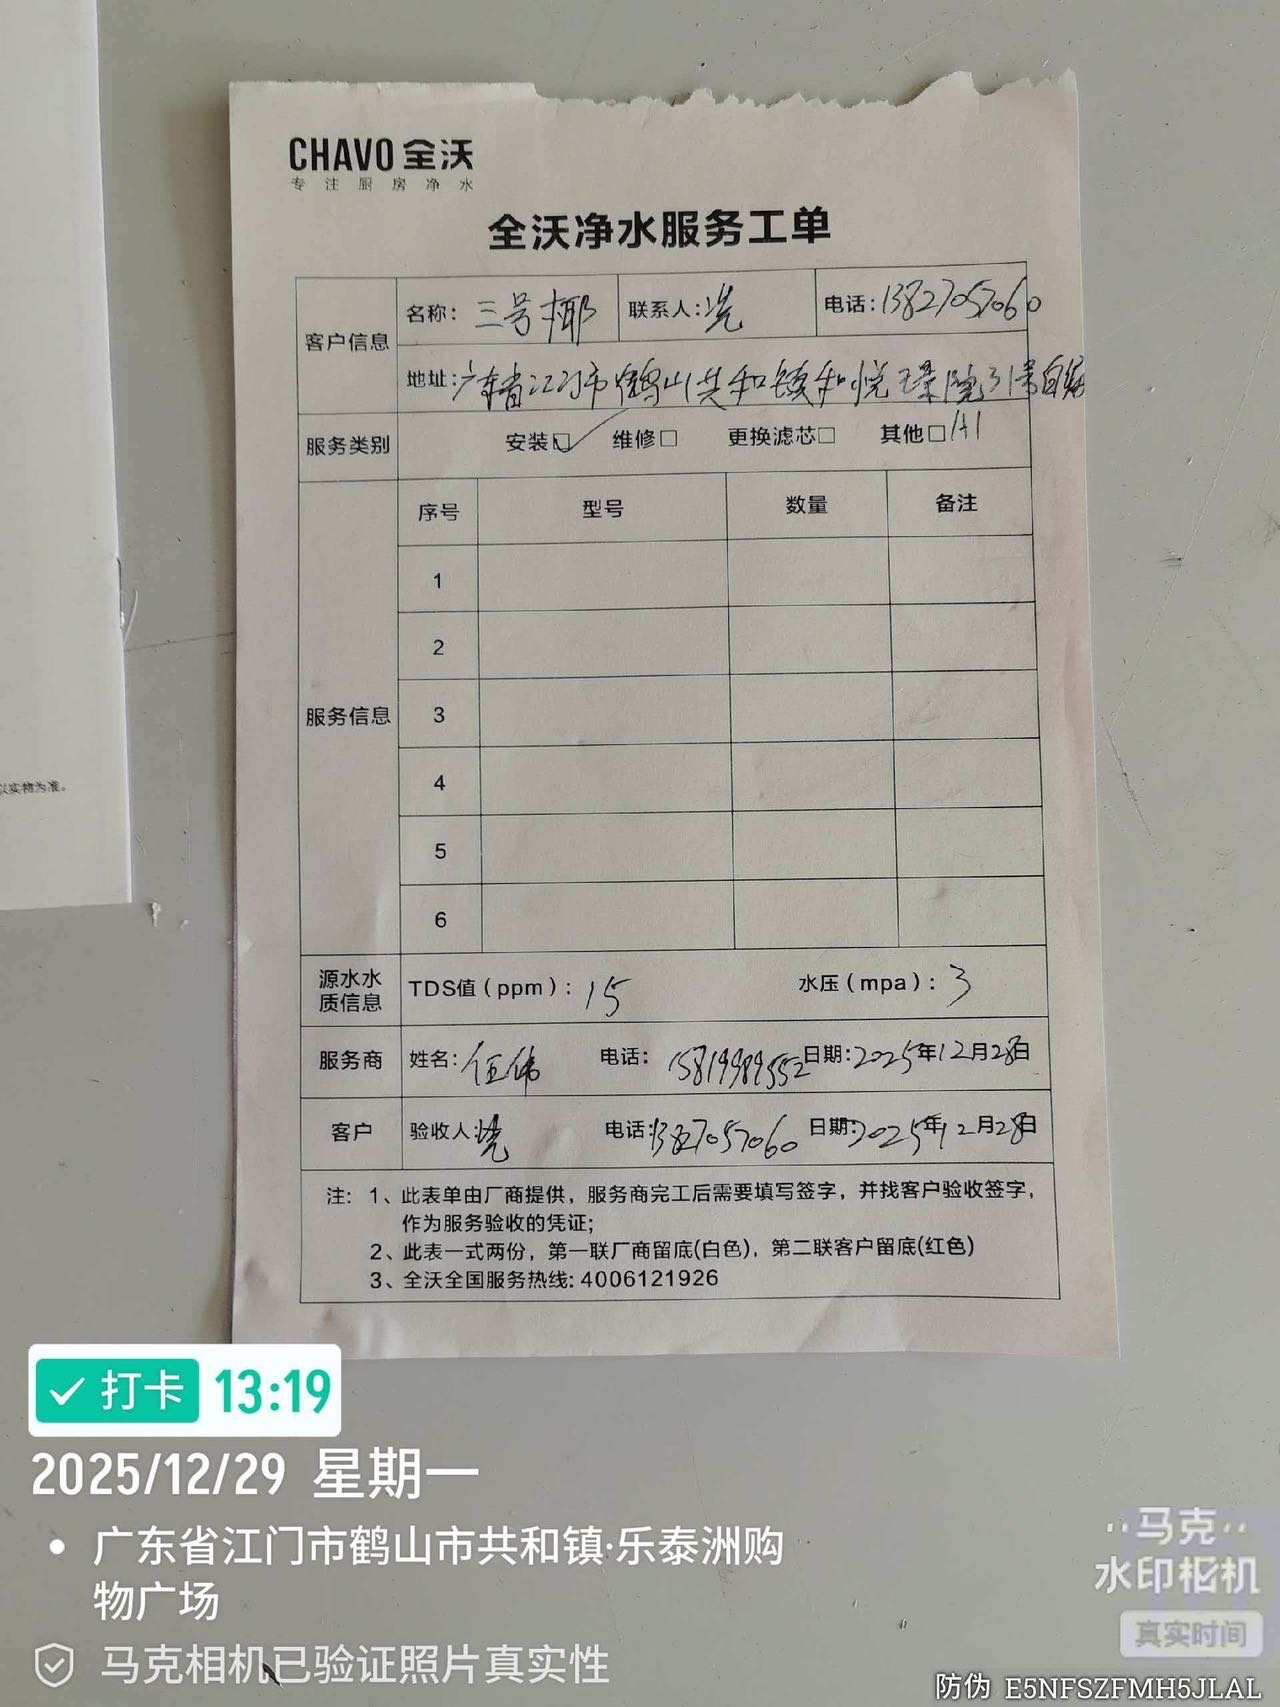 CHAVO 全沃
专注厨房净水
全沃净水服务工单
客户信息 名称: 三号椰 联系人: 冼 电话: 13827057060
地址: 广东省江门市鹤山共和镇和悦璟院31号自编
A1
服务类别 安装☑ 维修□ 更换滤芯□ 其他□
服务信息 序号 型号 数量 备注
1
2
3
4
5
6
源水水质信息 TDS值(ppm): 15 水压(mpa): 3
服务商 姓名: 伍伟 电话: 15819989552 日期: 2025年12月28日
客户 验收人: 冼 电话: 13827057060 日期: 2025年12月28日
注: 1、此表单由厂商提供，服务商完工后需要填写签字，并找客户验收签字，
作为服务验收的凭证;
2、此表一式两份，第一联厂商留底(白色)，第二联客户留底(红色)
3、全沃全国服务热线: 4006121926
以实物为准。
打卡 13:19
2025/12/29 星期一
广东省江门市鹤山市共和镇·乐泰洲购
物广场
马克相机已验证照片真实性
马克
水印相机
真实时间
防伪 E5NFSZFMH5JLAL